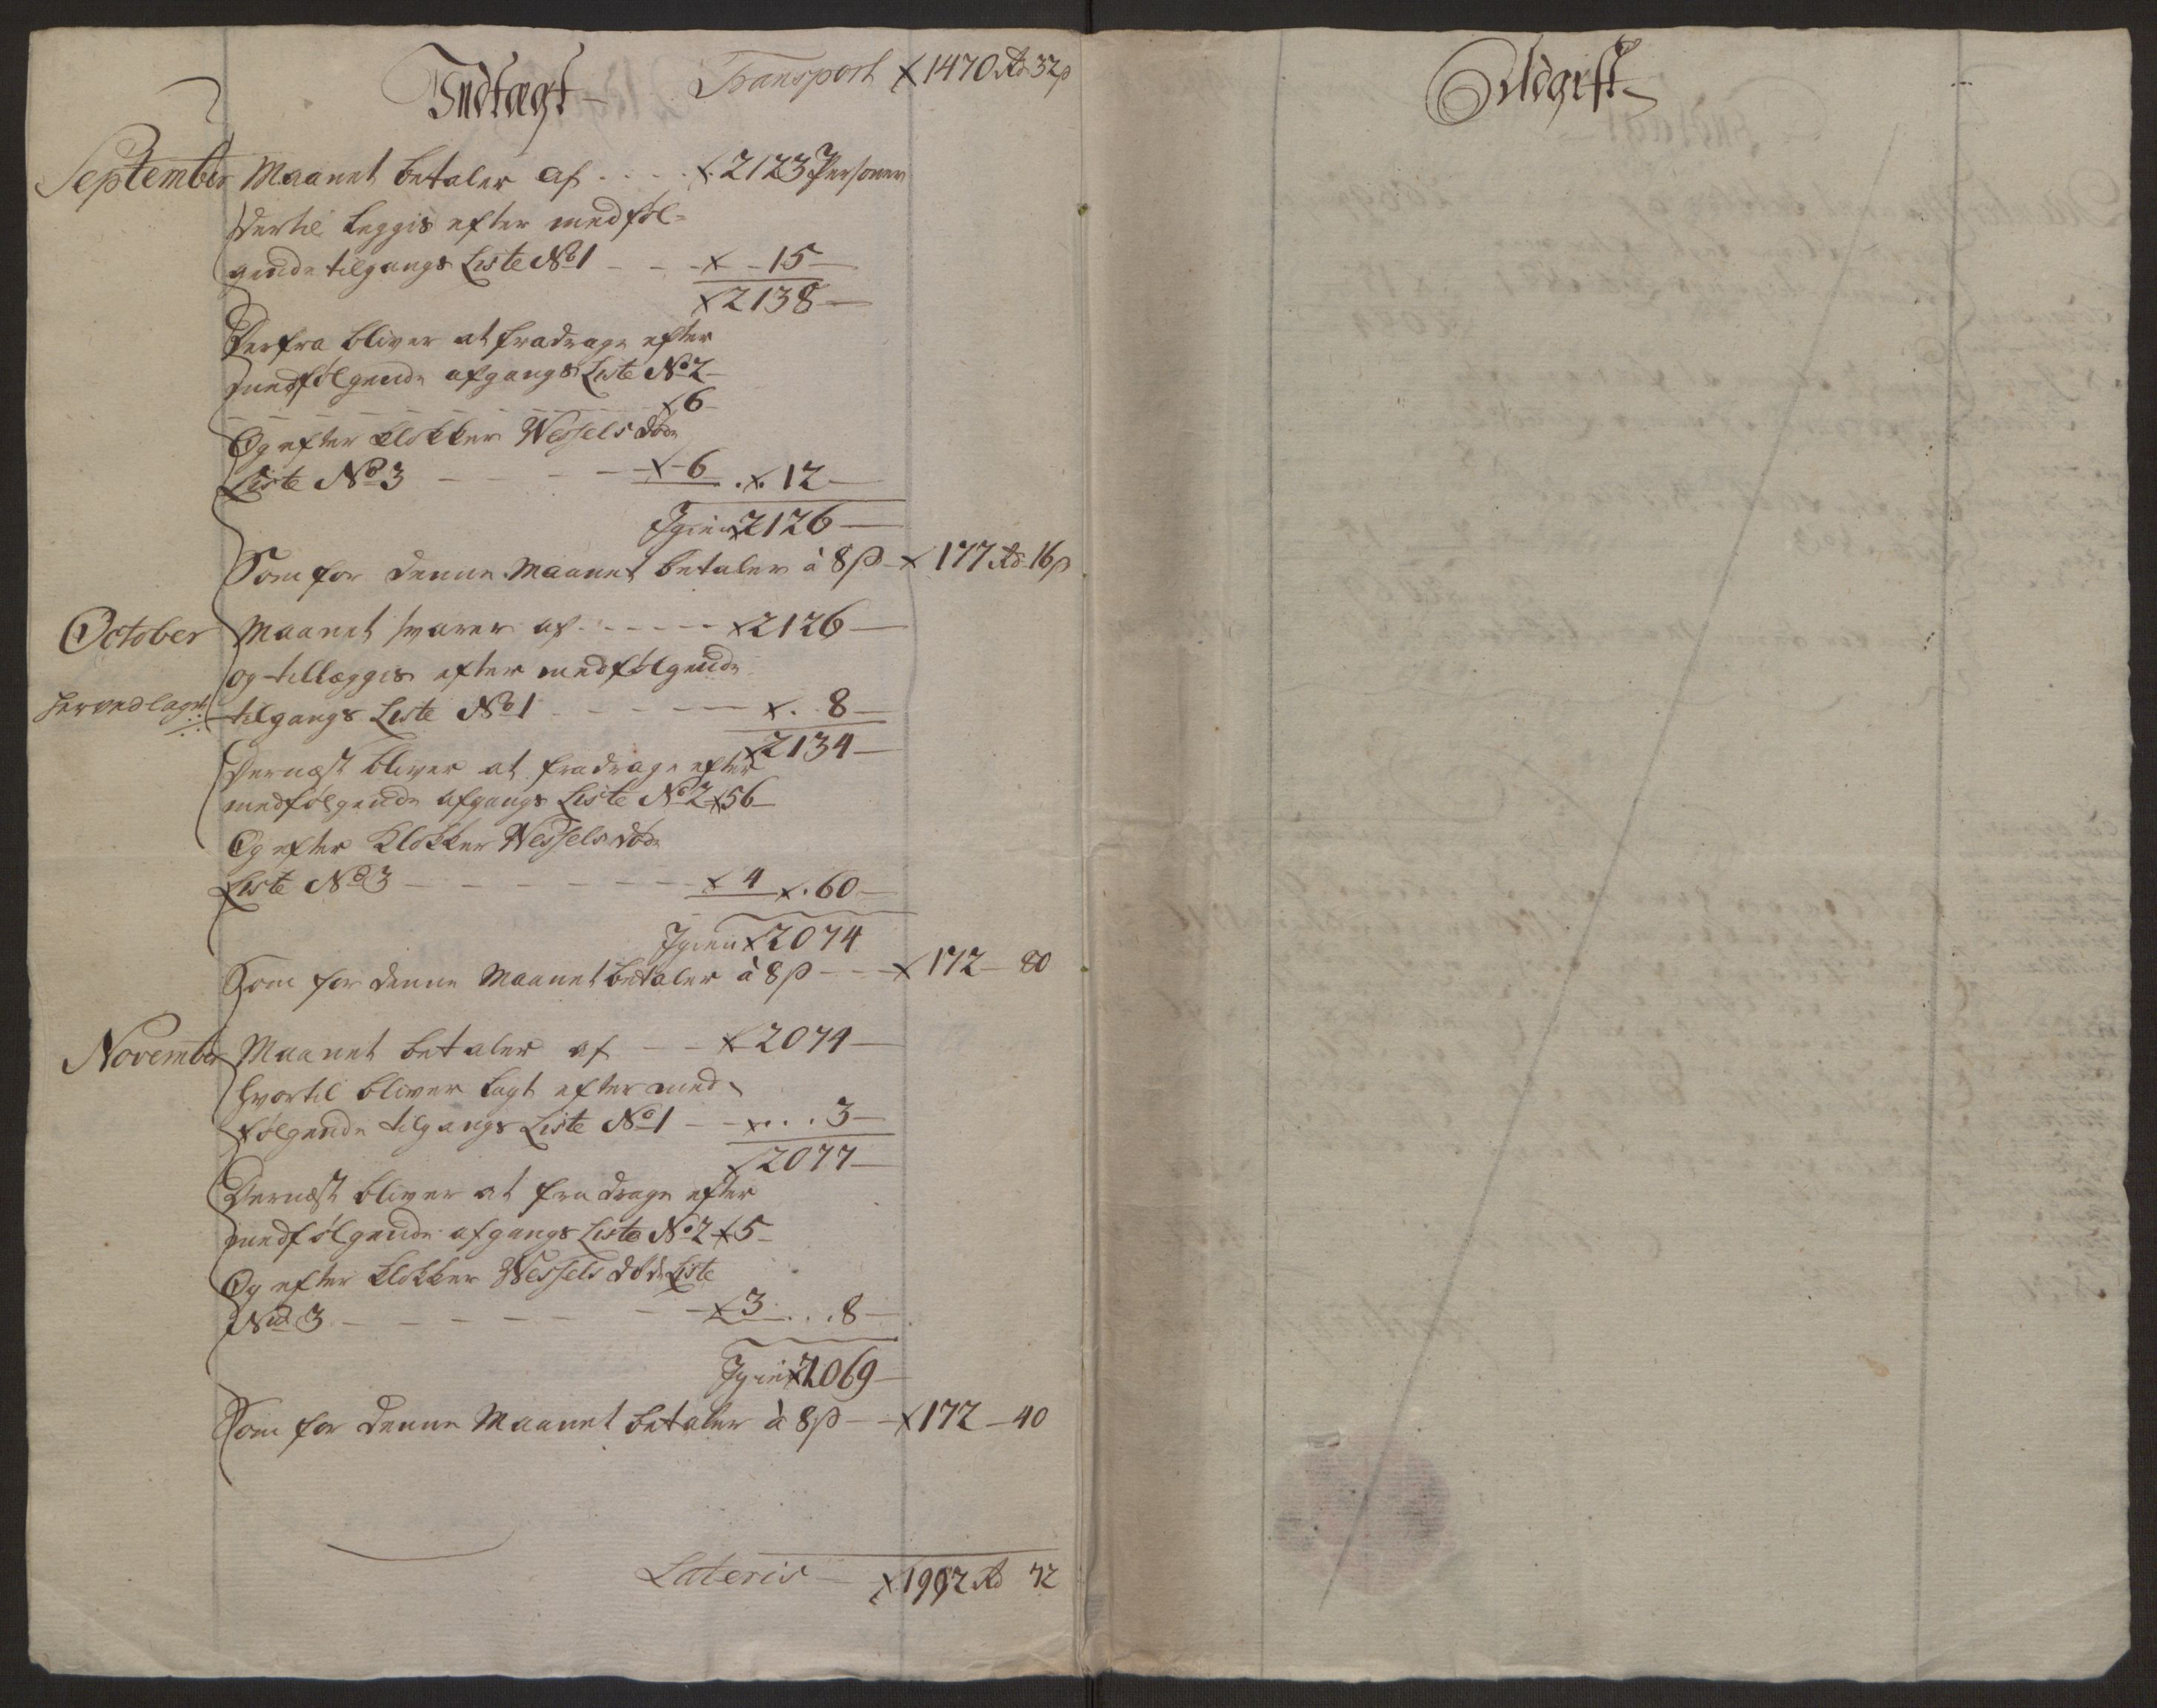 Indtægt Transport x 1470 Rd 32 β
September Maanet betaler af . . . . x. 2123 Personer
Dertil leggis efter medføl-
gende tilgangs Liste No 1 - - - x - 15 -
x 2138 -
Derfra bliver at fradrage efter
medfølgende afgangs Liste No 2 -
x 6 -
Og efter Klokker Wessels døde
Liste No 3 - - - - x - 6 . x. 12 -
Igien x 2126 -
Som for denne Maanet betaler à 8 β - x 177 Rd 16 β
October Maanet svarer af - - - - - x 2126 -
og tillægges efter medfølgende
hervedlagt tilgangs Liste No 1 - - - - x . 8 -
x 2134 -
Dernæst bliver at fradrage efter
medfølgende afgangs Liste No 2 x 56 -
Og efter Klokker Wessels døde
Liste No 3 - - - - - - - x 4 x . 60 -
Igien x 2074
Som for denne Maanet betaler à 8 β - - - x 172 - 80
November Maanet betaler af - - x 2074 -
hvortil bliver lagt efter med-
følgende tilgangs Liste No 1 - - x . . . 3 -
x 2077 -
Dernæst bliver at fradrage efter
medfølgende afgangs Liste No 2 x 5 -
Og efter Klokker Wessels døde Liste
No 3 - - - - - - - x 3 . . . 8 -
Igien x 2069 -
Som for denne Maanet betaler à 8 β - - x 172 - 40
Lateris - x 1992 Rd 72
Udgift